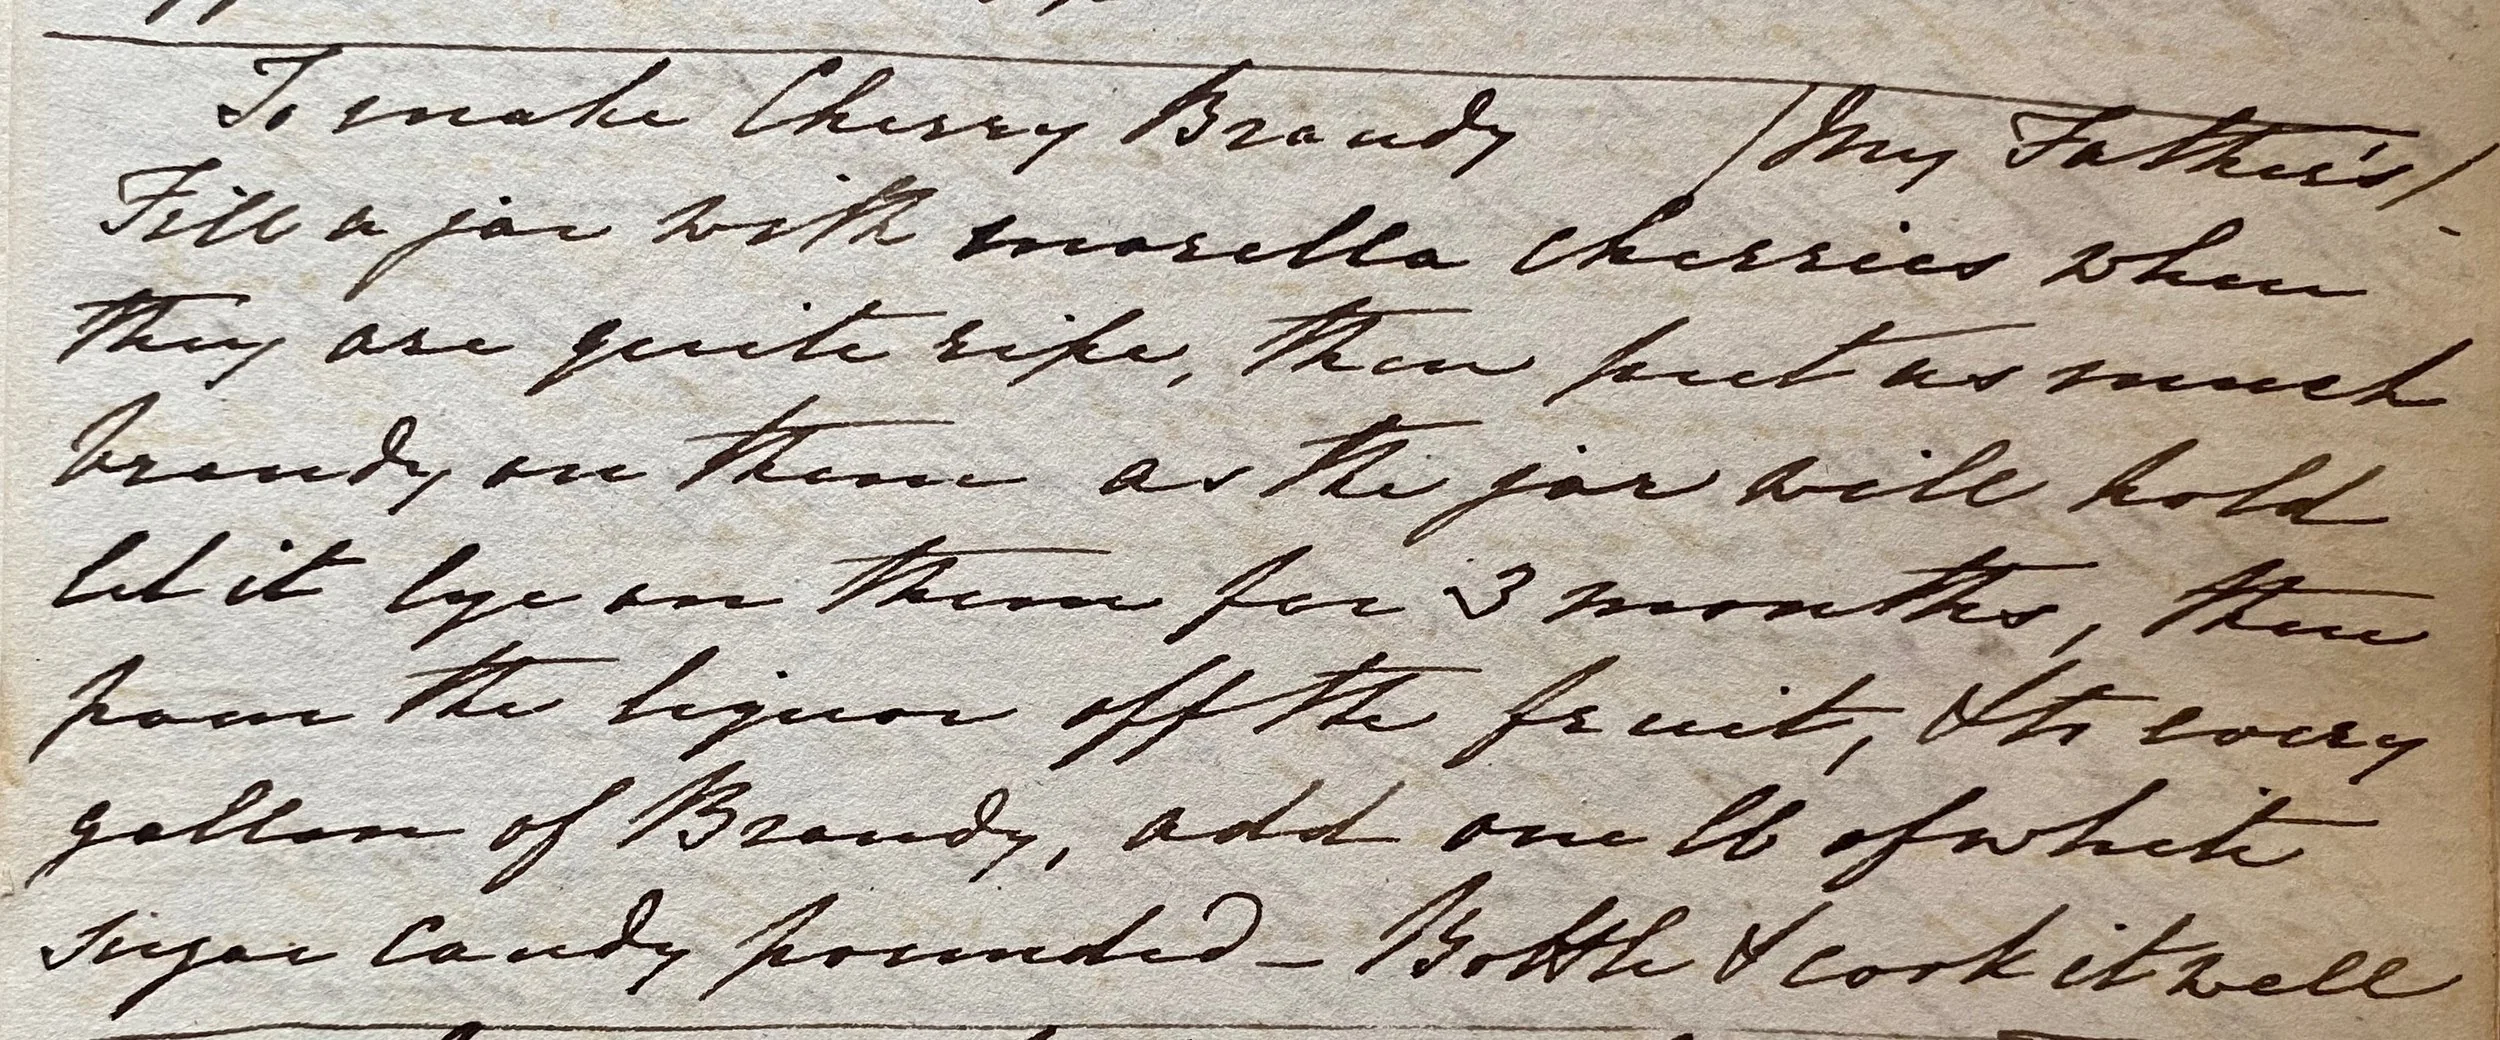 To make Cherry Brandy /My Father's/
Fill a jar with morella cherries when
they are quite ripe, then put as much
brandy on them as the jar will hold
let it lye on them for 3 months, then
pour the liquor off the fruit, & to every
gallon of Brandy, add one lb of white
sugar candy pounded - Bottle & cork it well